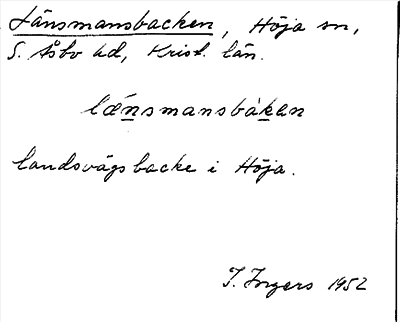 Länsmansbacken, Höja sn,
S. Åsbo hd, Krist. län.
lǽnsmansbàkan
landsvägsbacke i Höja.
I. Ingers 1952